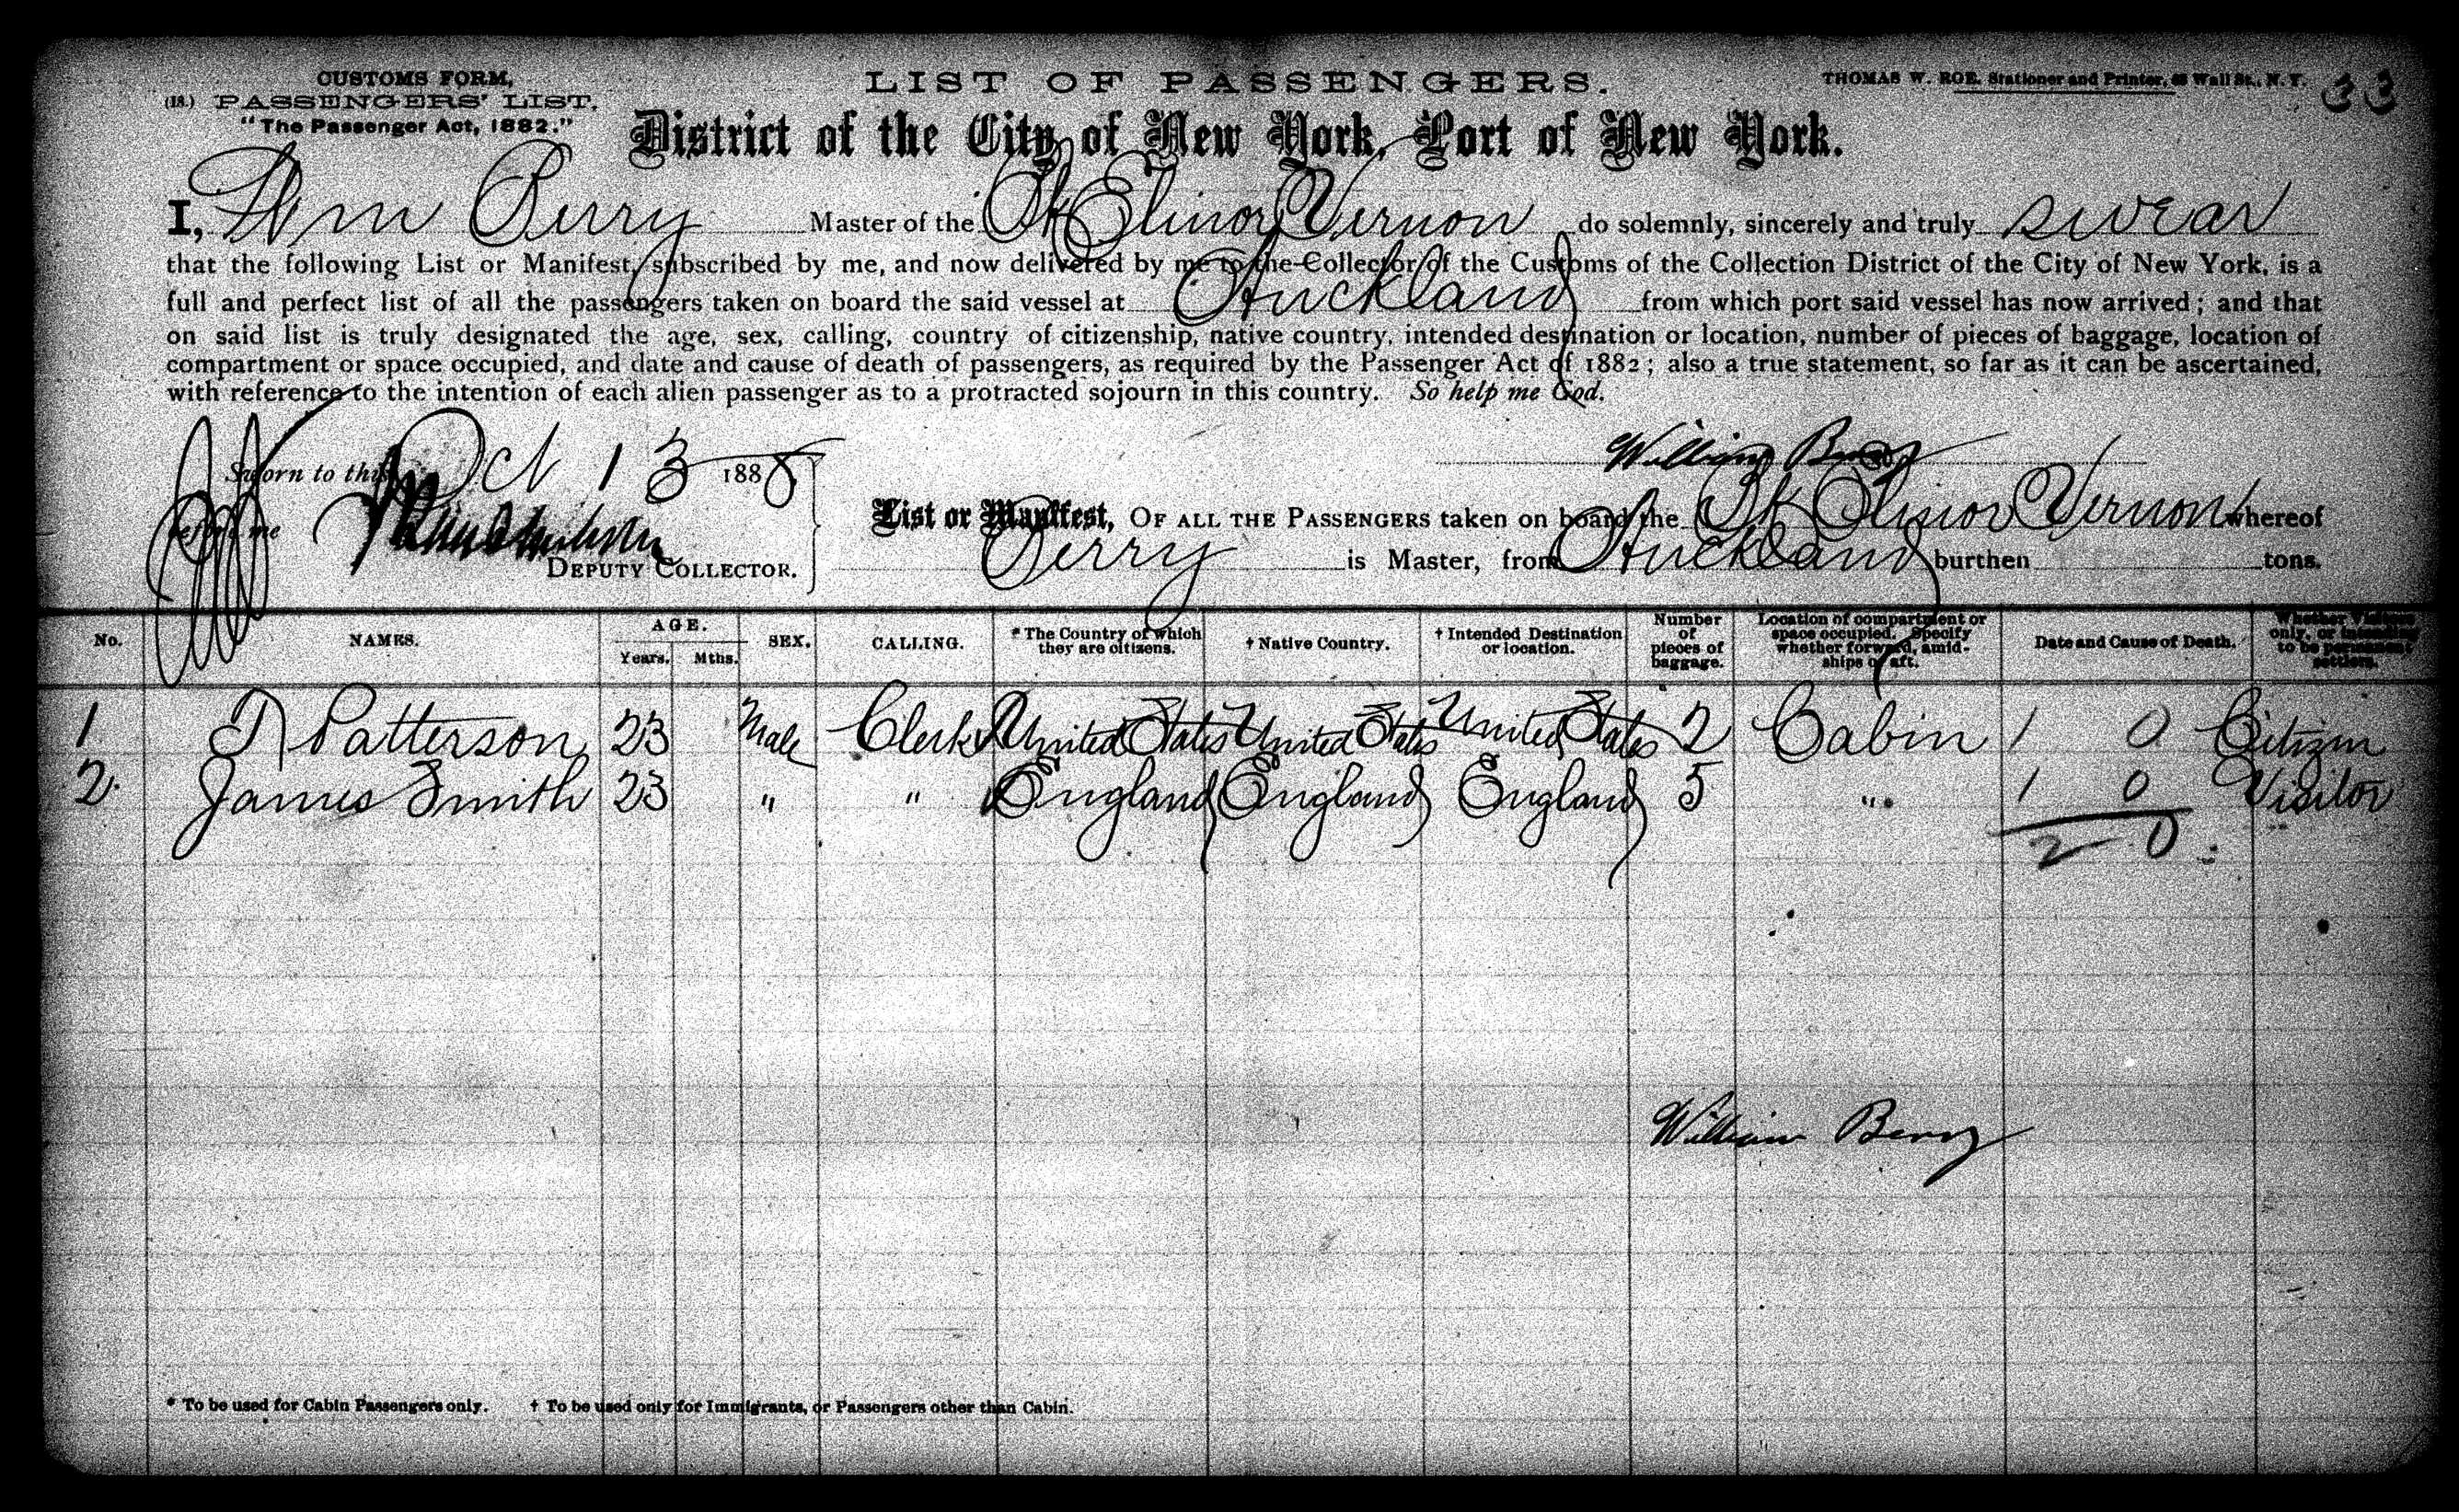 CUSTOMS FORM,
(18.) PASSENGERS' LIST.
"The Passenger Act, 1882."
LIST OF PASSENGERS.
THOMAS W. ROE, Stationer and Printer, Wall St., N. Y.
33
District of the City of New York, Port of New York.
I, Wm Berry Master of the Bk Elinor Vernon do solemnly, sincerely and truly swear
that the following List or Manifest, subscribed by me, and now delivered by me to the Collector of the Customs of the Collection District of the City of New York, is a
full and perfect list of all the passengers taken on board the said vessel at Auckland from which port said vessel has now arrived; and that
on said list is truly designated the age, sex, calling, country of citizenship, native country, intended destination or location, number of pieces of baggage, location of
compartment or space occupied, and date and cause of death of passengers, as required by the Passenger Act of 1882; also a true statement, so far as it can be ascertained,
with reference to the intention of each alien passenger as to a protracted sojourn in this country. So help me God.
Sworn to this Oct 13 1888
William Berry
before me
DEPUTY COLLECTOR.
List or Manifest, OF ALL THE PASSENGERS taken on board the Bk Elinor Vernon whereof
Berry is Master, from Auckland burthen tons.
No. NAMES. AGE. Years. Mths. SEX. CALLING. * The Country of which they are citizens. † Native Country. † Intended Destination or location. Number of pieces of baggage. Location of compartment or space occupied. Specify whether forward, amidships or aft. Date and Cause of Death. Whether Visitors only, or intending to be permanent settlers.
1 Patterson 23 Male Clerk United States United States United States 2 Cabin 1 0 Citizen
2. James Smith 23 " " England England England 5 " 1 0 Visitor
2 0
William Berry
* To be used for Cabin Passengers only. † To be used only for Immigrants, or Passengers other than Cabin.